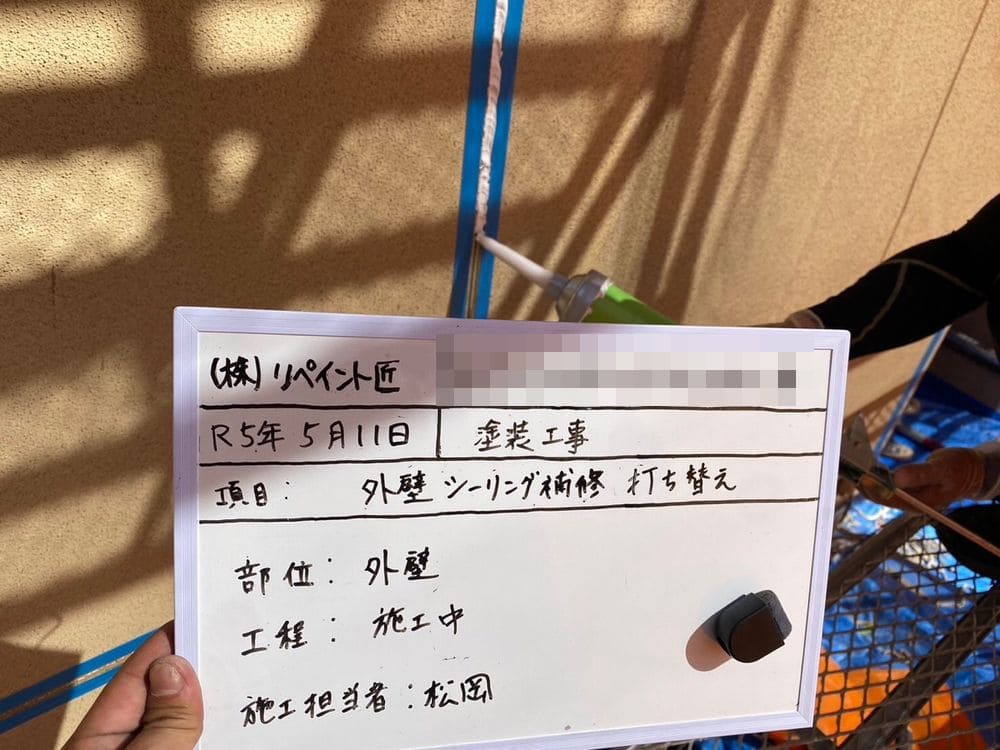 (株)リペイント匠
R5年 5月11日 塗装工事
項目: 外壁 シーリング補修 打ち替え
部位: 外壁
工程: 施工中
施工担当者:松岡